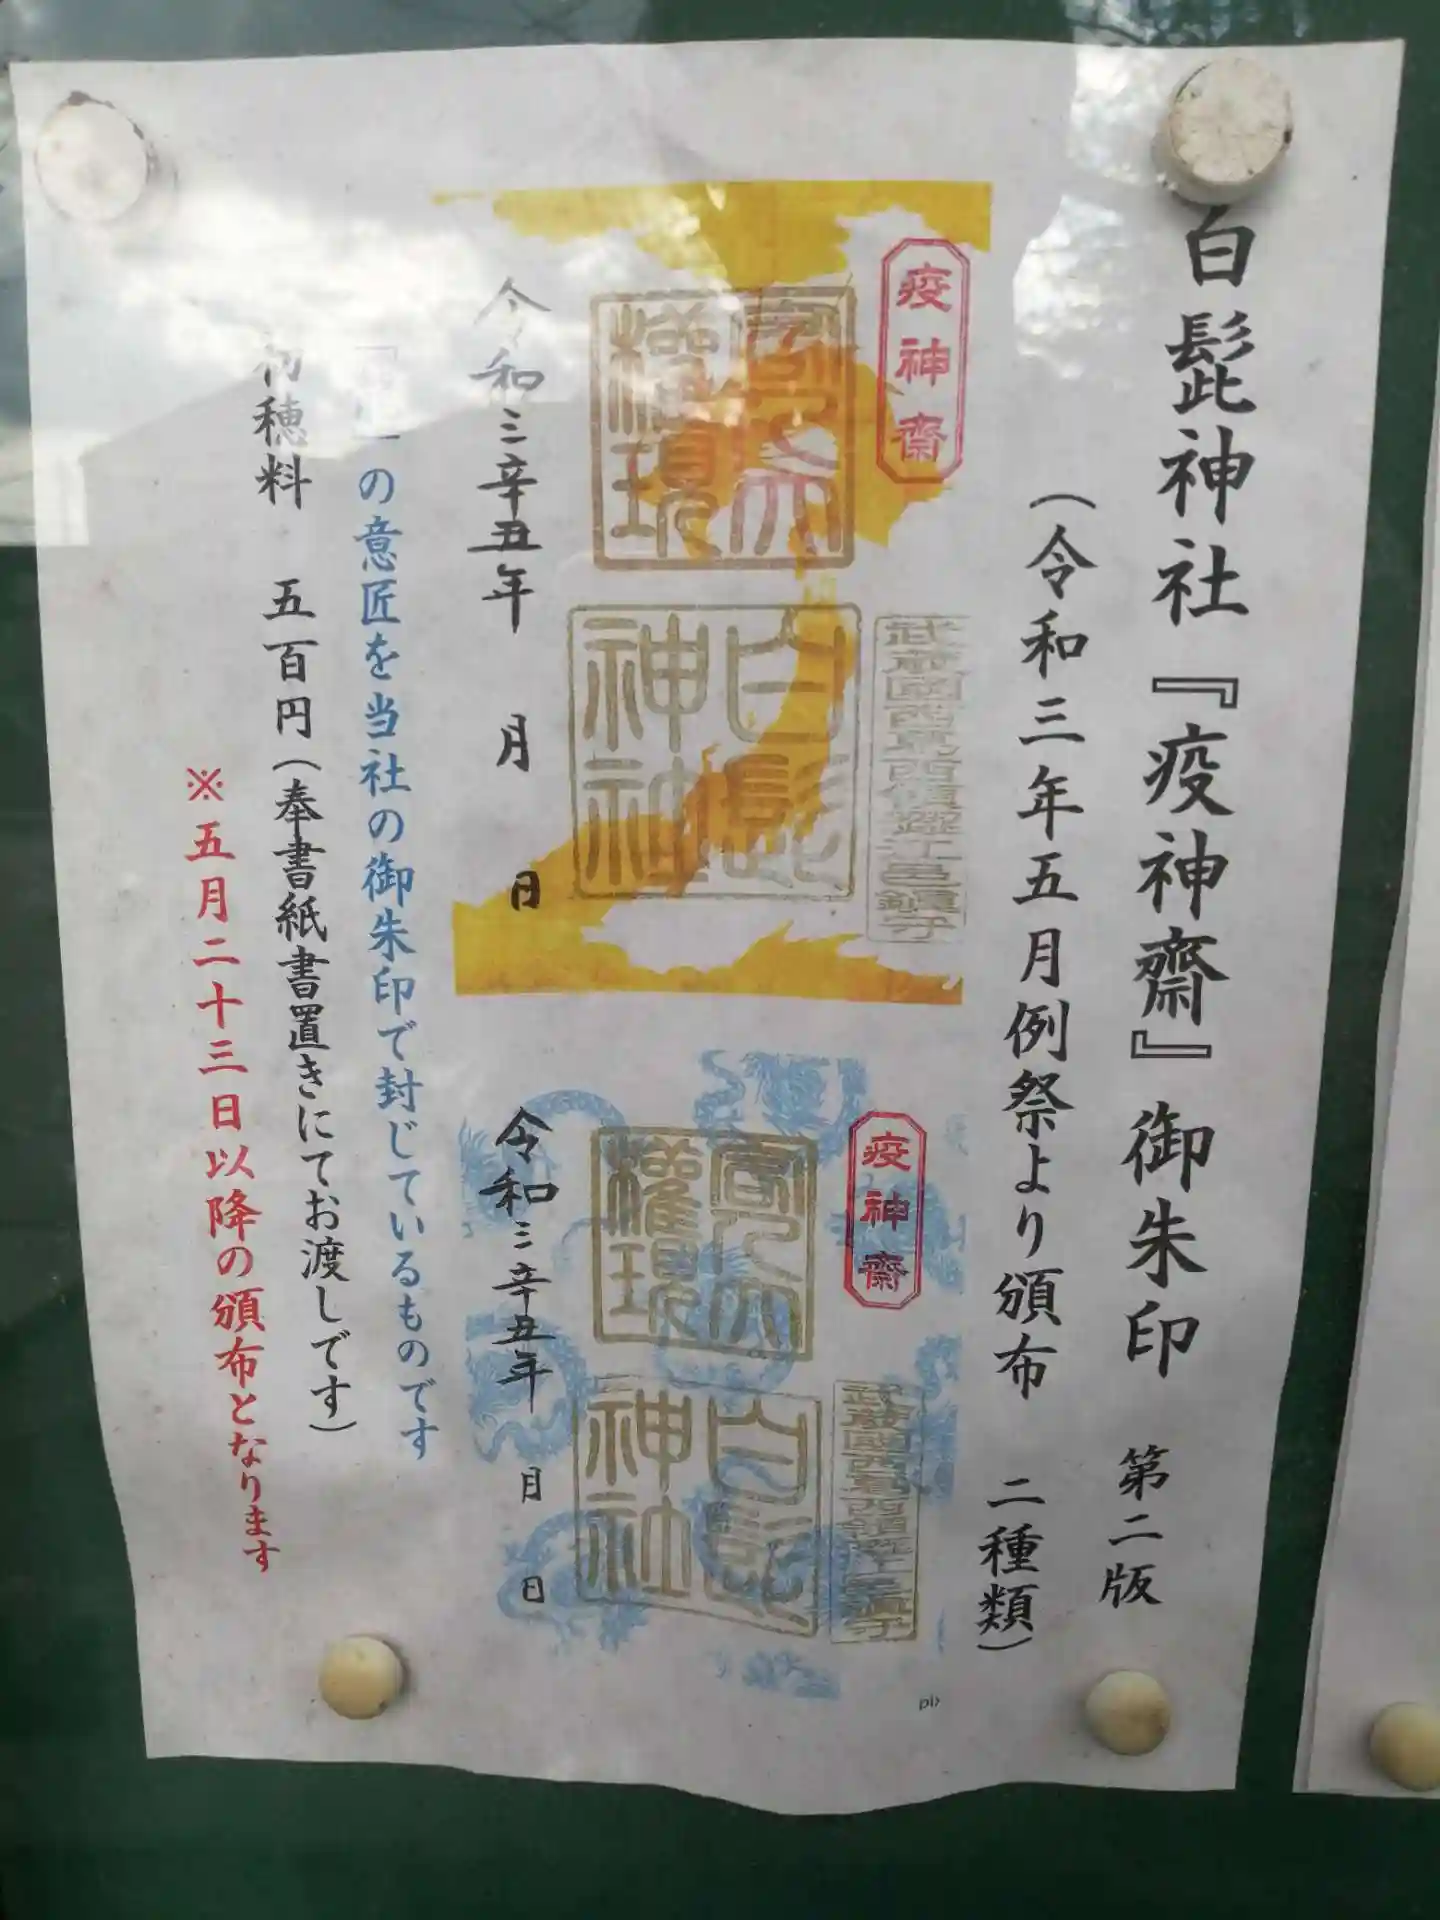 白髭神社『疫神齋』御朱印 第二版
(令和三年五月例祭より頒布 二種類)
疫神齋
武蔵國西葛西領
白髭
神社
権現
令和三辛丑年 月 日
疫神齋
武蔵國西葛西領
白髭
神社
権現
令和三辛丑年 月 日
の意匠を当社の御朱印で封じているものです
初穂料 五百円(奉書紙書置きにてお渡しです)
※五月二十三日以降の頒布となります